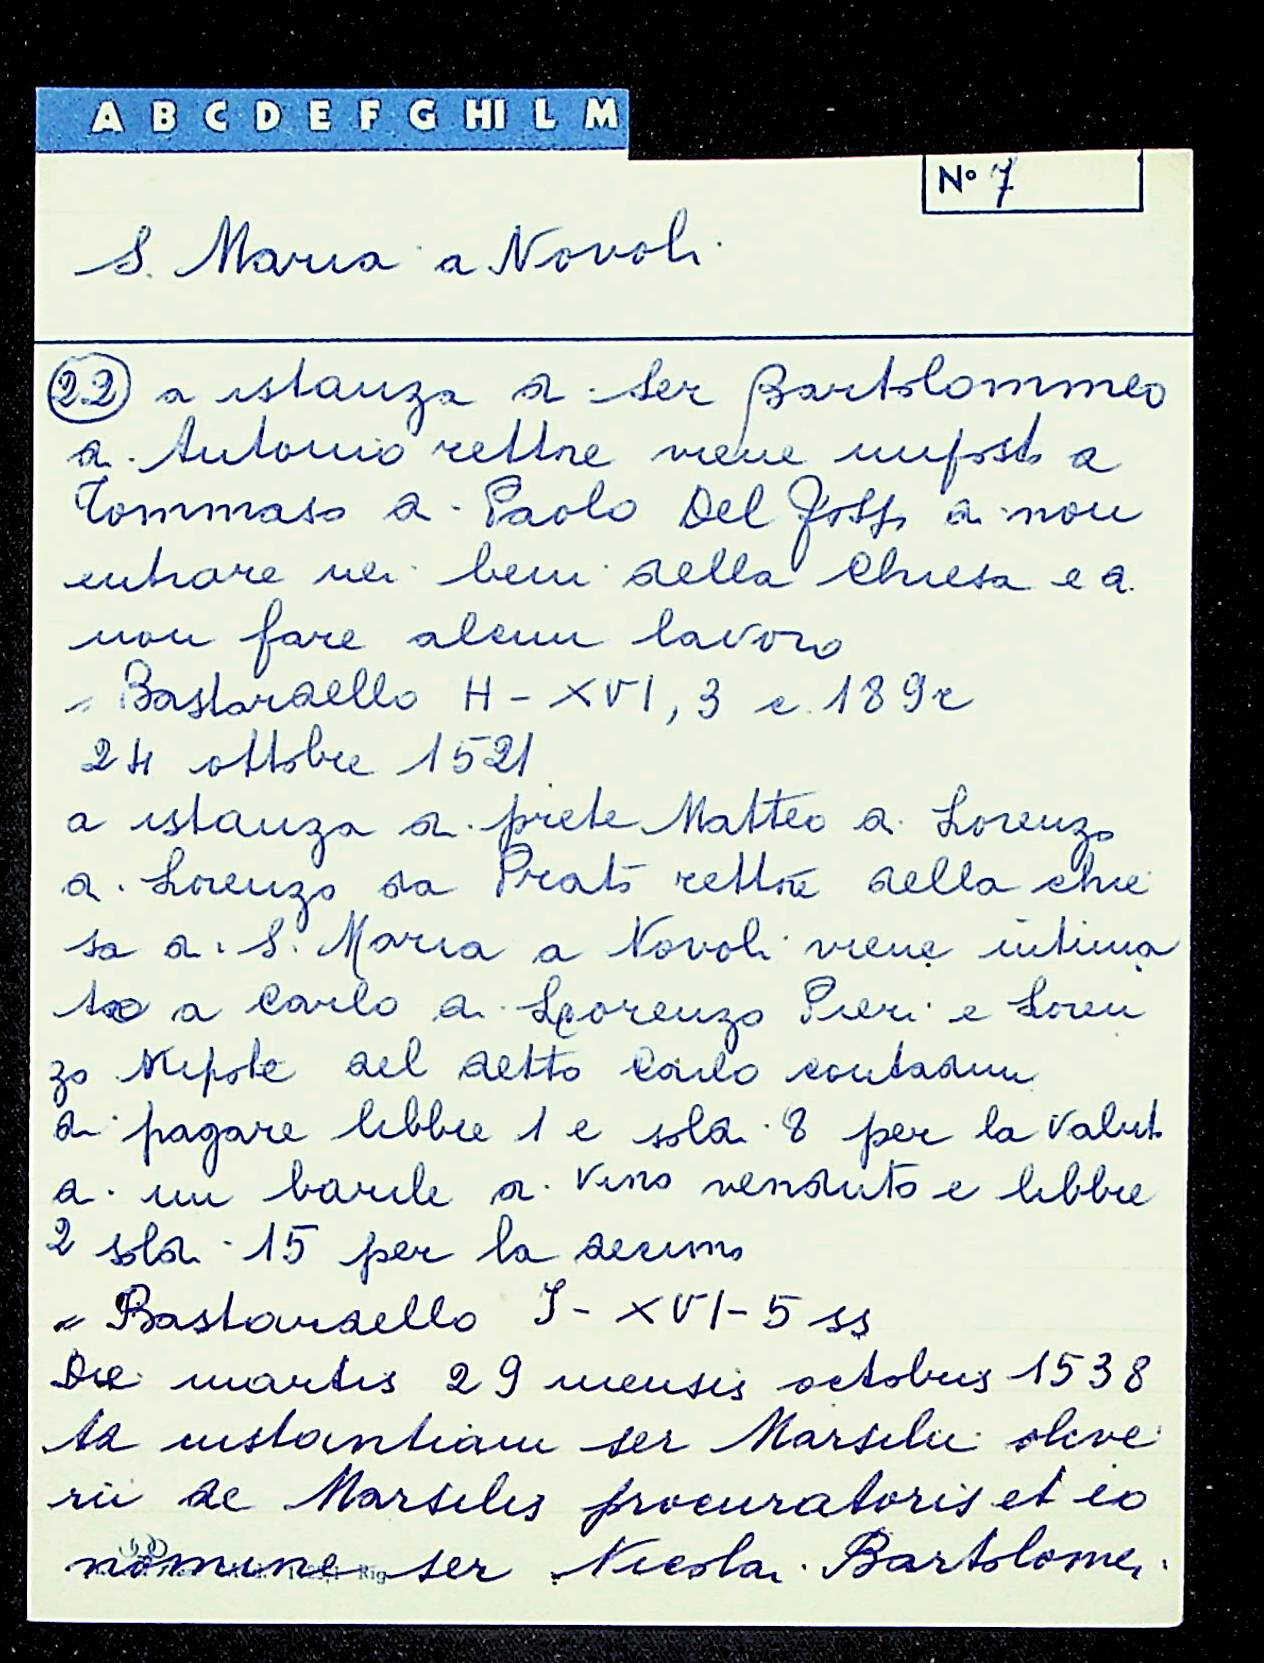 A B C D E F G HI L M
N° 7
S. Maria a Novoli
22 a istanza di ser Bartolommeo
di Antonio rettore viene imposto a
Tommaso di Paolo Del di non
entrare nei beni della Chiesa e di
non fare alcun lavoro
" Bastardello H - XVI, 3 c. 189r
24 ottobre 1521
a istanza di prete Matteo di Lorenzo
di Lorenzo da Prato rettore della chie
sa di S. Maria a Novoli viene intima
to a Carlo di Lorenzo Pieri e Loren
zo Nipote del detto Carlo contadini
di pagare libbre 1 e soldi 8 per la valut
di un barile di vino venduto e libbre
2 soldi 15 per la decima
" Bastardello I - XVI - 5 ss
Die martis 29 mensis octobris 1538
Ad instantiam ser Marsilii olive
rii de Marsilis procuratoris et eo
nomine ser Nicolai Bartolomei